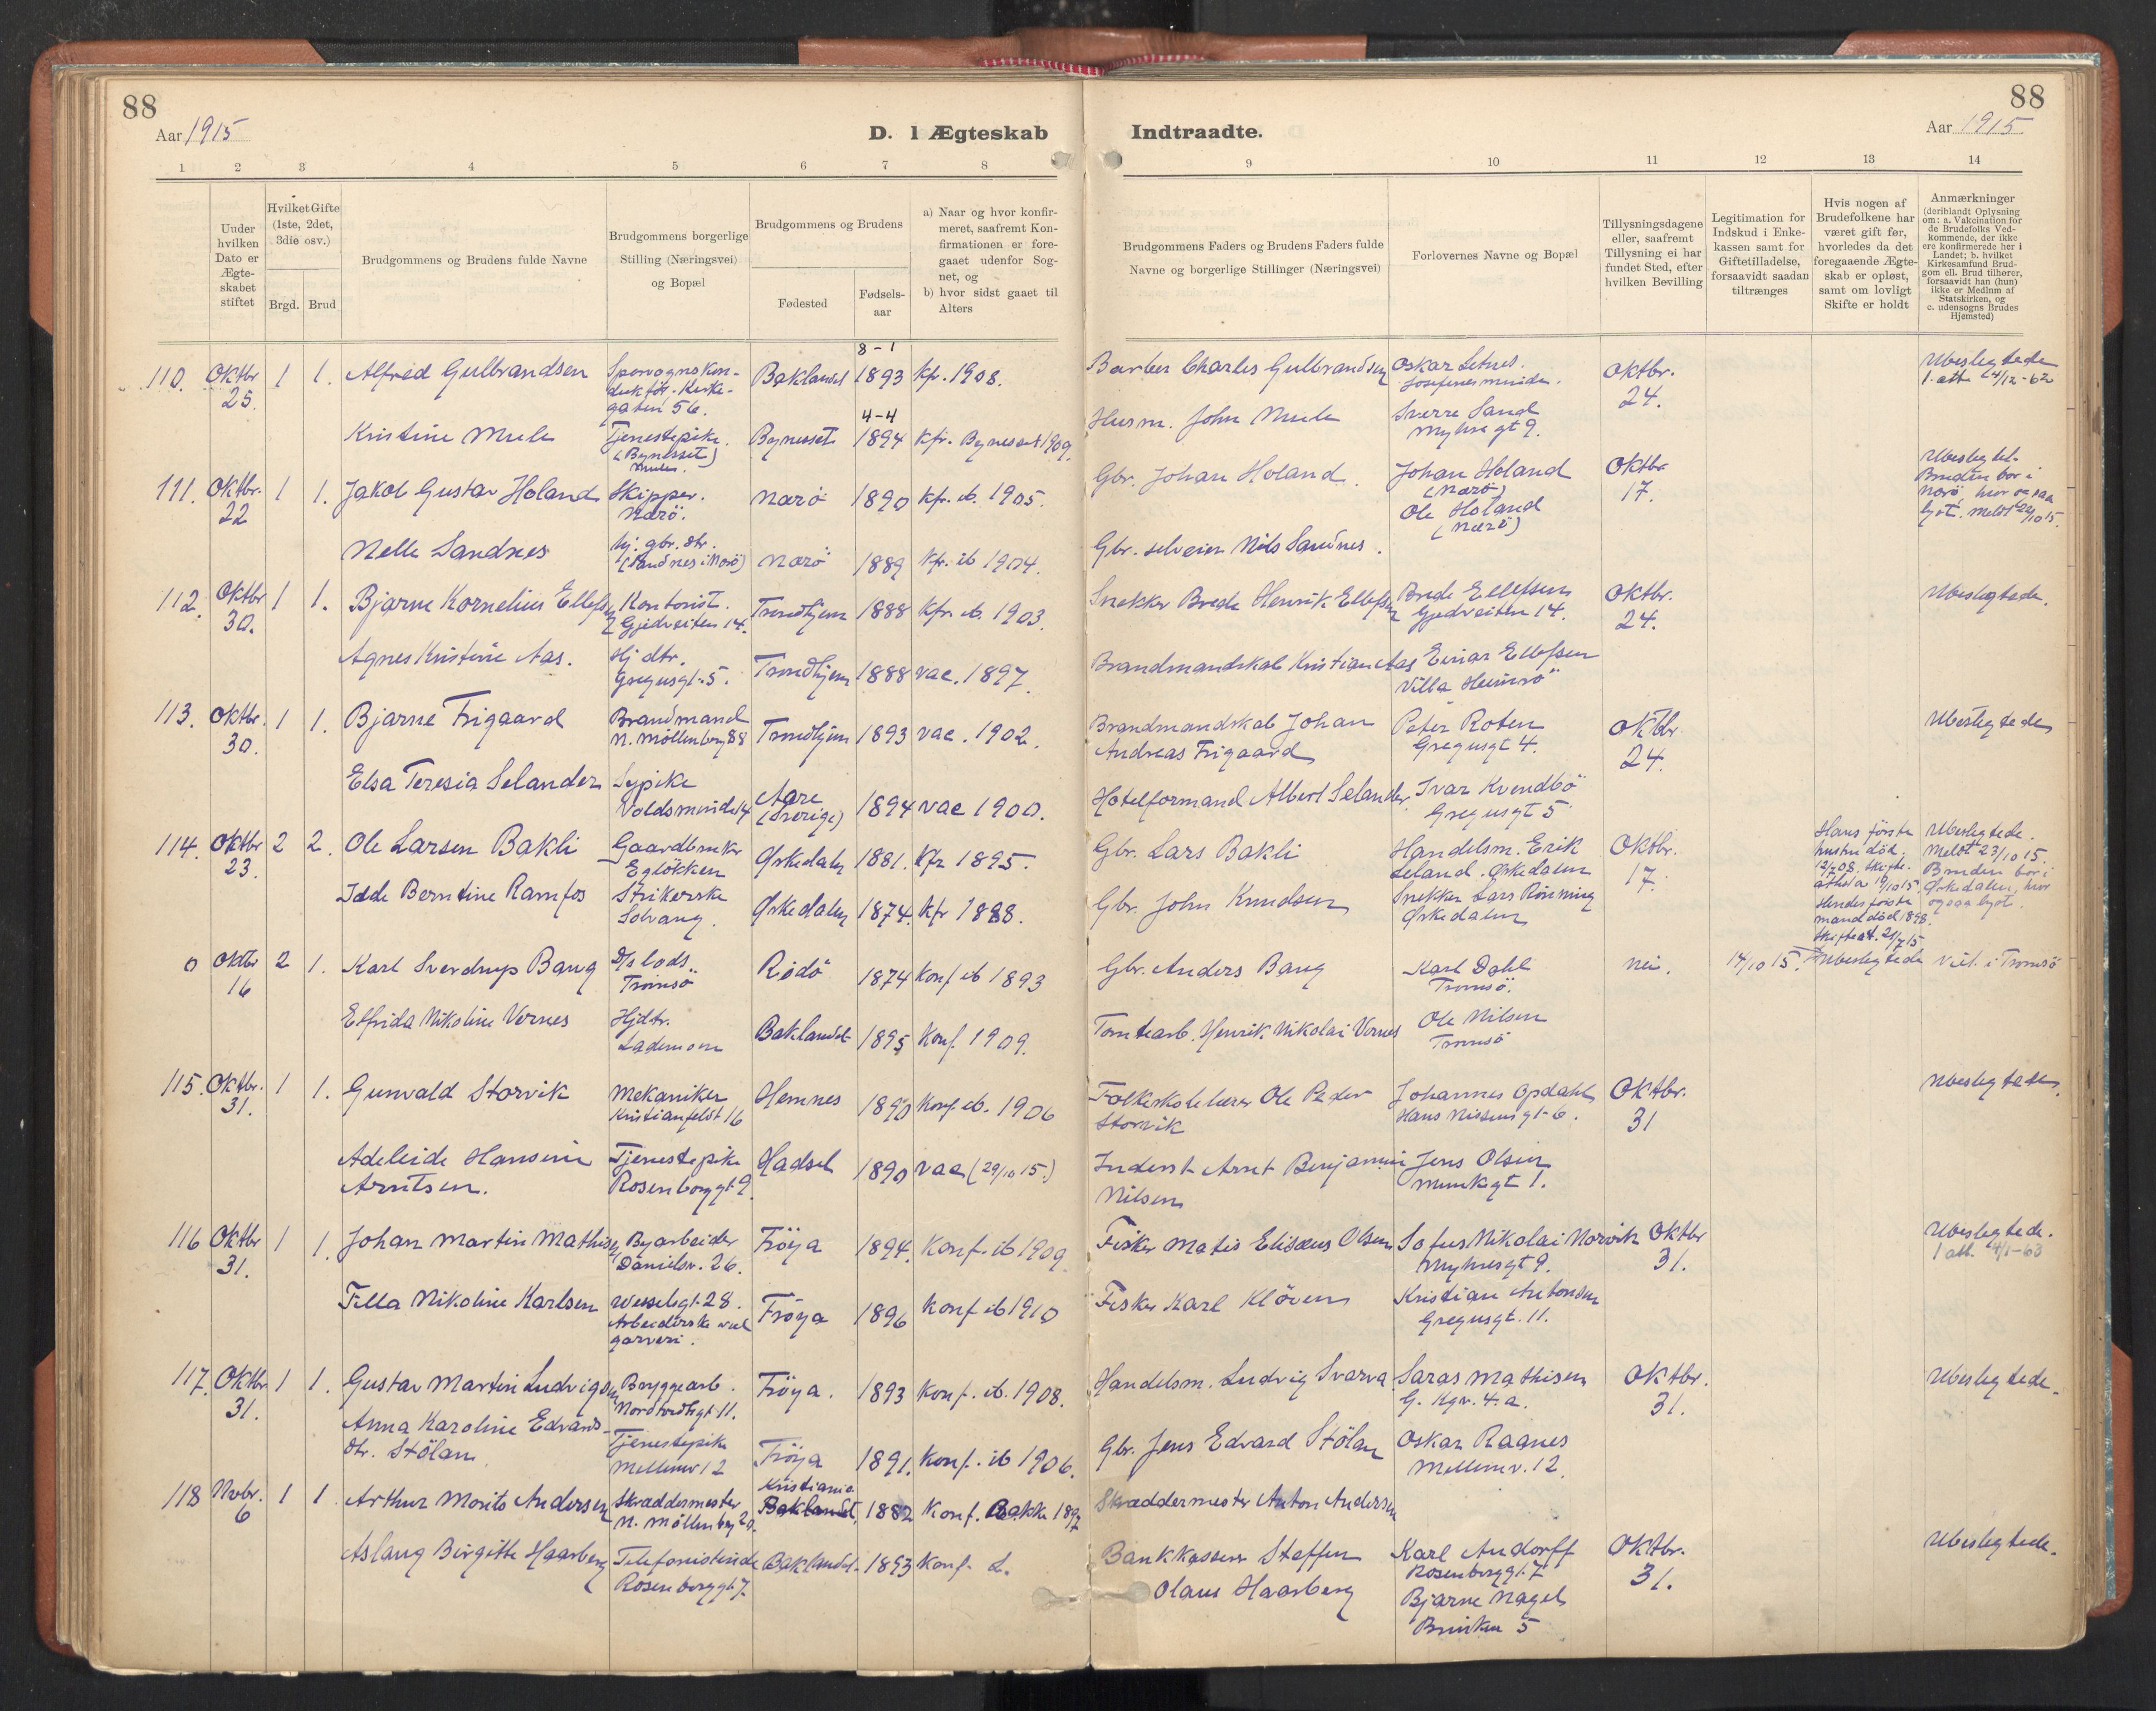 88
Aar 1915
D. I Ægteskab
1 2 3 4 5 6 7 8
Under hvilken Dato er Ægte-skabet stiftet
Hvilket Gifte (1ste, 2det, 3die osv.)
Brgd. Brud
Brudgommens og Brudens fulde Navne
Brudgommens borgerlige Stilling (Næringsvei) og Bopæl
Brudgommens og Brudens
Fødested
Fødsels-aar
a) Naar og hvor konfir-meret, saafremt Kon-firmationen er fore-gaaet udenfor Sog-net, og
b) hvor sidst gaaet til Alters
88
Aar 1915
Indtraadte.
9 10 11 12 13 14
Brudgommens Faders og Brudens Faders fulde Navne og borgerlige Stillinger (Næringsvei)
Forlovernes Navne og Bopæl
Tillysningsdagene eller, saafremt Tillysning ei har fundet Sted, efter hvilken Bevilling
Legitimation for Indskud i Enke-kassen samt for Giftetilladelse, forsaavidt saadan tiltrænges
Hvis nogen af Brudefolkene har været gift før, hvorledes da det foregaaende Ægte-skab er opløst, samt om lovligt Skifte er holdt
Anmærkninger (deriblandt Oplysning om: a. Vakcination for de Brudefolks Ved-kommende, der ikke ere konfirmerede her i Landet; b. hvilket Kirkesamfund Brud-gom ell. Brud tilhører, forsaavidt han (hun) ikke er Medlm af Statskirken, og c. udensogns Brudes Hjemsted)
110. Oktbr 25. 1 1. Alfred Gulbrandsen Sporvognskon-duktör. Kirke-gaten 56. Baklandet 8-1 1893 Kfr. 1908. Barber Charles Gulbrandsen Oskar Letnes. Oktbr. 24. Ubeslegtede 1 att. 4/12-62
Kristine Mule Tjenestepike. (Bynesset) Bynesset 4-4 1894 Kfr. Bynesset 1909. Husm. John Mule Sverre Sand Myhresgt 9.
111. Oktbr. 22 1 1. Jakob Gustav Holand Skipper. Nærö. Nærö 1890 Kfr. ib. 1905. Gbr. Johan Holand. Johan Holand (Nærö) Ole Holand (Nærö) Oktbr 17. Ubeslegtet. Bruden bor i Nærö, hvor ogsaa lyst. Meldt 22/10 15.
Nelle Sandnes hj. gbr. dtr. (Sandnes i Nærö) Nærö 1889 Kfr. ib 1904. Gbr. selveier Nils Sandnes.
112. Oktbr 30. 1 1. Bjarne Kornelius Ellefsen Kontorist. Gjedveiten 14. Trondhjem 1888 Kfr. ib. 1903. Snekker Brede Henrik Ellefsen Brede Ellefsen Gjedveiten 14. Oktbr. 24. Ubeslegtede.
Agnes Kristine Aas. Hj. dtr. Gregusgt. 5. Trondhjem 1888 vac. 1897. Brandmandskab Kristian Aas Einar Ellefsen Villa Heimsö
113. Oktbr. 30. 1 1. Bjarne Frigaard Brandmand N. Möllenberg 88 Trondhjem 1893 vac. 1902. Brandmandskab Johan Andreas Frigaard Peter Roten Gregusgt 4. Oktbr. 24. Ubeslegtede
Elsa Teresia Selander Sypike Voldsminde 14 Aare (Sverige) 1894 vac 1900. Hotelformand Albert Selander. Ivar Kvendbö Gregusgt 5
114. Oktbr 23. 2 2. Ole Larsen Bakli Gaardbruker Eglökken Ørkedalen 1881. Kfr 1895. Gbr. Lars Bakli Handelsm. Erik Leland. Ørkedalen Oktbr. 17. Hans förste hustru död. 12/7 08. Skifte-attest a 19/10 15. Ubeslegtede. Meldt 23/10 15. Bruden bor i Ørkedalen, hvor ogsaa lyst.
Idde Berntine Ramfos Strikerske Solvang. Ørkedalen 1874. Kfr 1888. Gbr. John Knudsen Snekker Lars Rönning Ørkedalen Hendes förste mand död 1898. Skifteat. 21/7 15
0 Oktbr 16 2 1. Karl Sverdrup Baug D/s lods. Tromsö Rödö 1874 Konf ib 1893 Gbr. Anders Baug Karl Dahl Tromsö. nei. 14/10 15. Ubeslegtede Viet i Tromsö
Elfrida Nikoline Vernes Hjdtr. Lademoen Baklandet 1895 Konf. 1909. Tomtearb. Henrik Nikolai Vernes Ole Nilsen Tromsö
115. Oktbr. 31. 1 1. Gunvald Storvik Mekaniker Kristianfeldt 16 Hemnes 1890 Konf. ib. 1906 Folkeskolelærer Ole Peder Storvik Johannes Opdahl Hans Nissensgt. 6. Oktbr. 31 Ubeslegtede.
Adeleide Hansine Arntsen. Tjenestepike Rosenborggt. 9. Hadsel 1890 vac (29/10 15.) Inderst Arnt Benjamin Nilsen Jens Olsen Munkgt 1.
116 Oktbr 31. 1 1. Johan Martin Mathisen Byarbeider Danielsv. 26. Fröya 1894. Konf. ib 1909. Fisker Matis Elisæus Olsen Sofus Nikolai Norvik Myhresgt 9. Oktbr 31. Ubeslegtede. 1 att. 4/1-63
Tilla Nikoline Karlsen Wesselsgt. 28. Arbeiderske ved garveri. Fröya 1896 Konf ib 1910 Fisker Karl Klöven Kristian Antonsen Gregusgt. 11.
117. Oktbr 31. 1 1. Gustav Martin Ludvigsen Bryggearb. Nordtvedtsgt 11. Fröya. 1893 Konf. ib. 1908. Handelsm. Ludvig Svarva Saras Mathisen G. Kgv. 4. a. Oktbr. 31. Ubeslegtede.
Anna Karoline Edvards-dtr. Stölan. Tjenestepike Mellemv 12 Fröya 1891. Konf. ib 1906. Gbr. Jens Edvard Stölan Oskar Raanes Mellemv. 12.
118 Novbr. 6 1 1 Arthur Morits Andersen Skreddermester N. Möllenberg 20. Kristiania Baklandet, 1882 Konf. Bakke 1897 Skræddermester Anton Andersen
Aslaug Birgitte Haarberg Telefonistinde Rosenborggt 7. Baklandet. 1893 Konf. L. Bankkasserer Steffen Olaus Haarberg Karl Andorff Rosenborggt. 7 Bjarne Nagel Brinken 5 Oktbr. 31. Ubeslegtede.